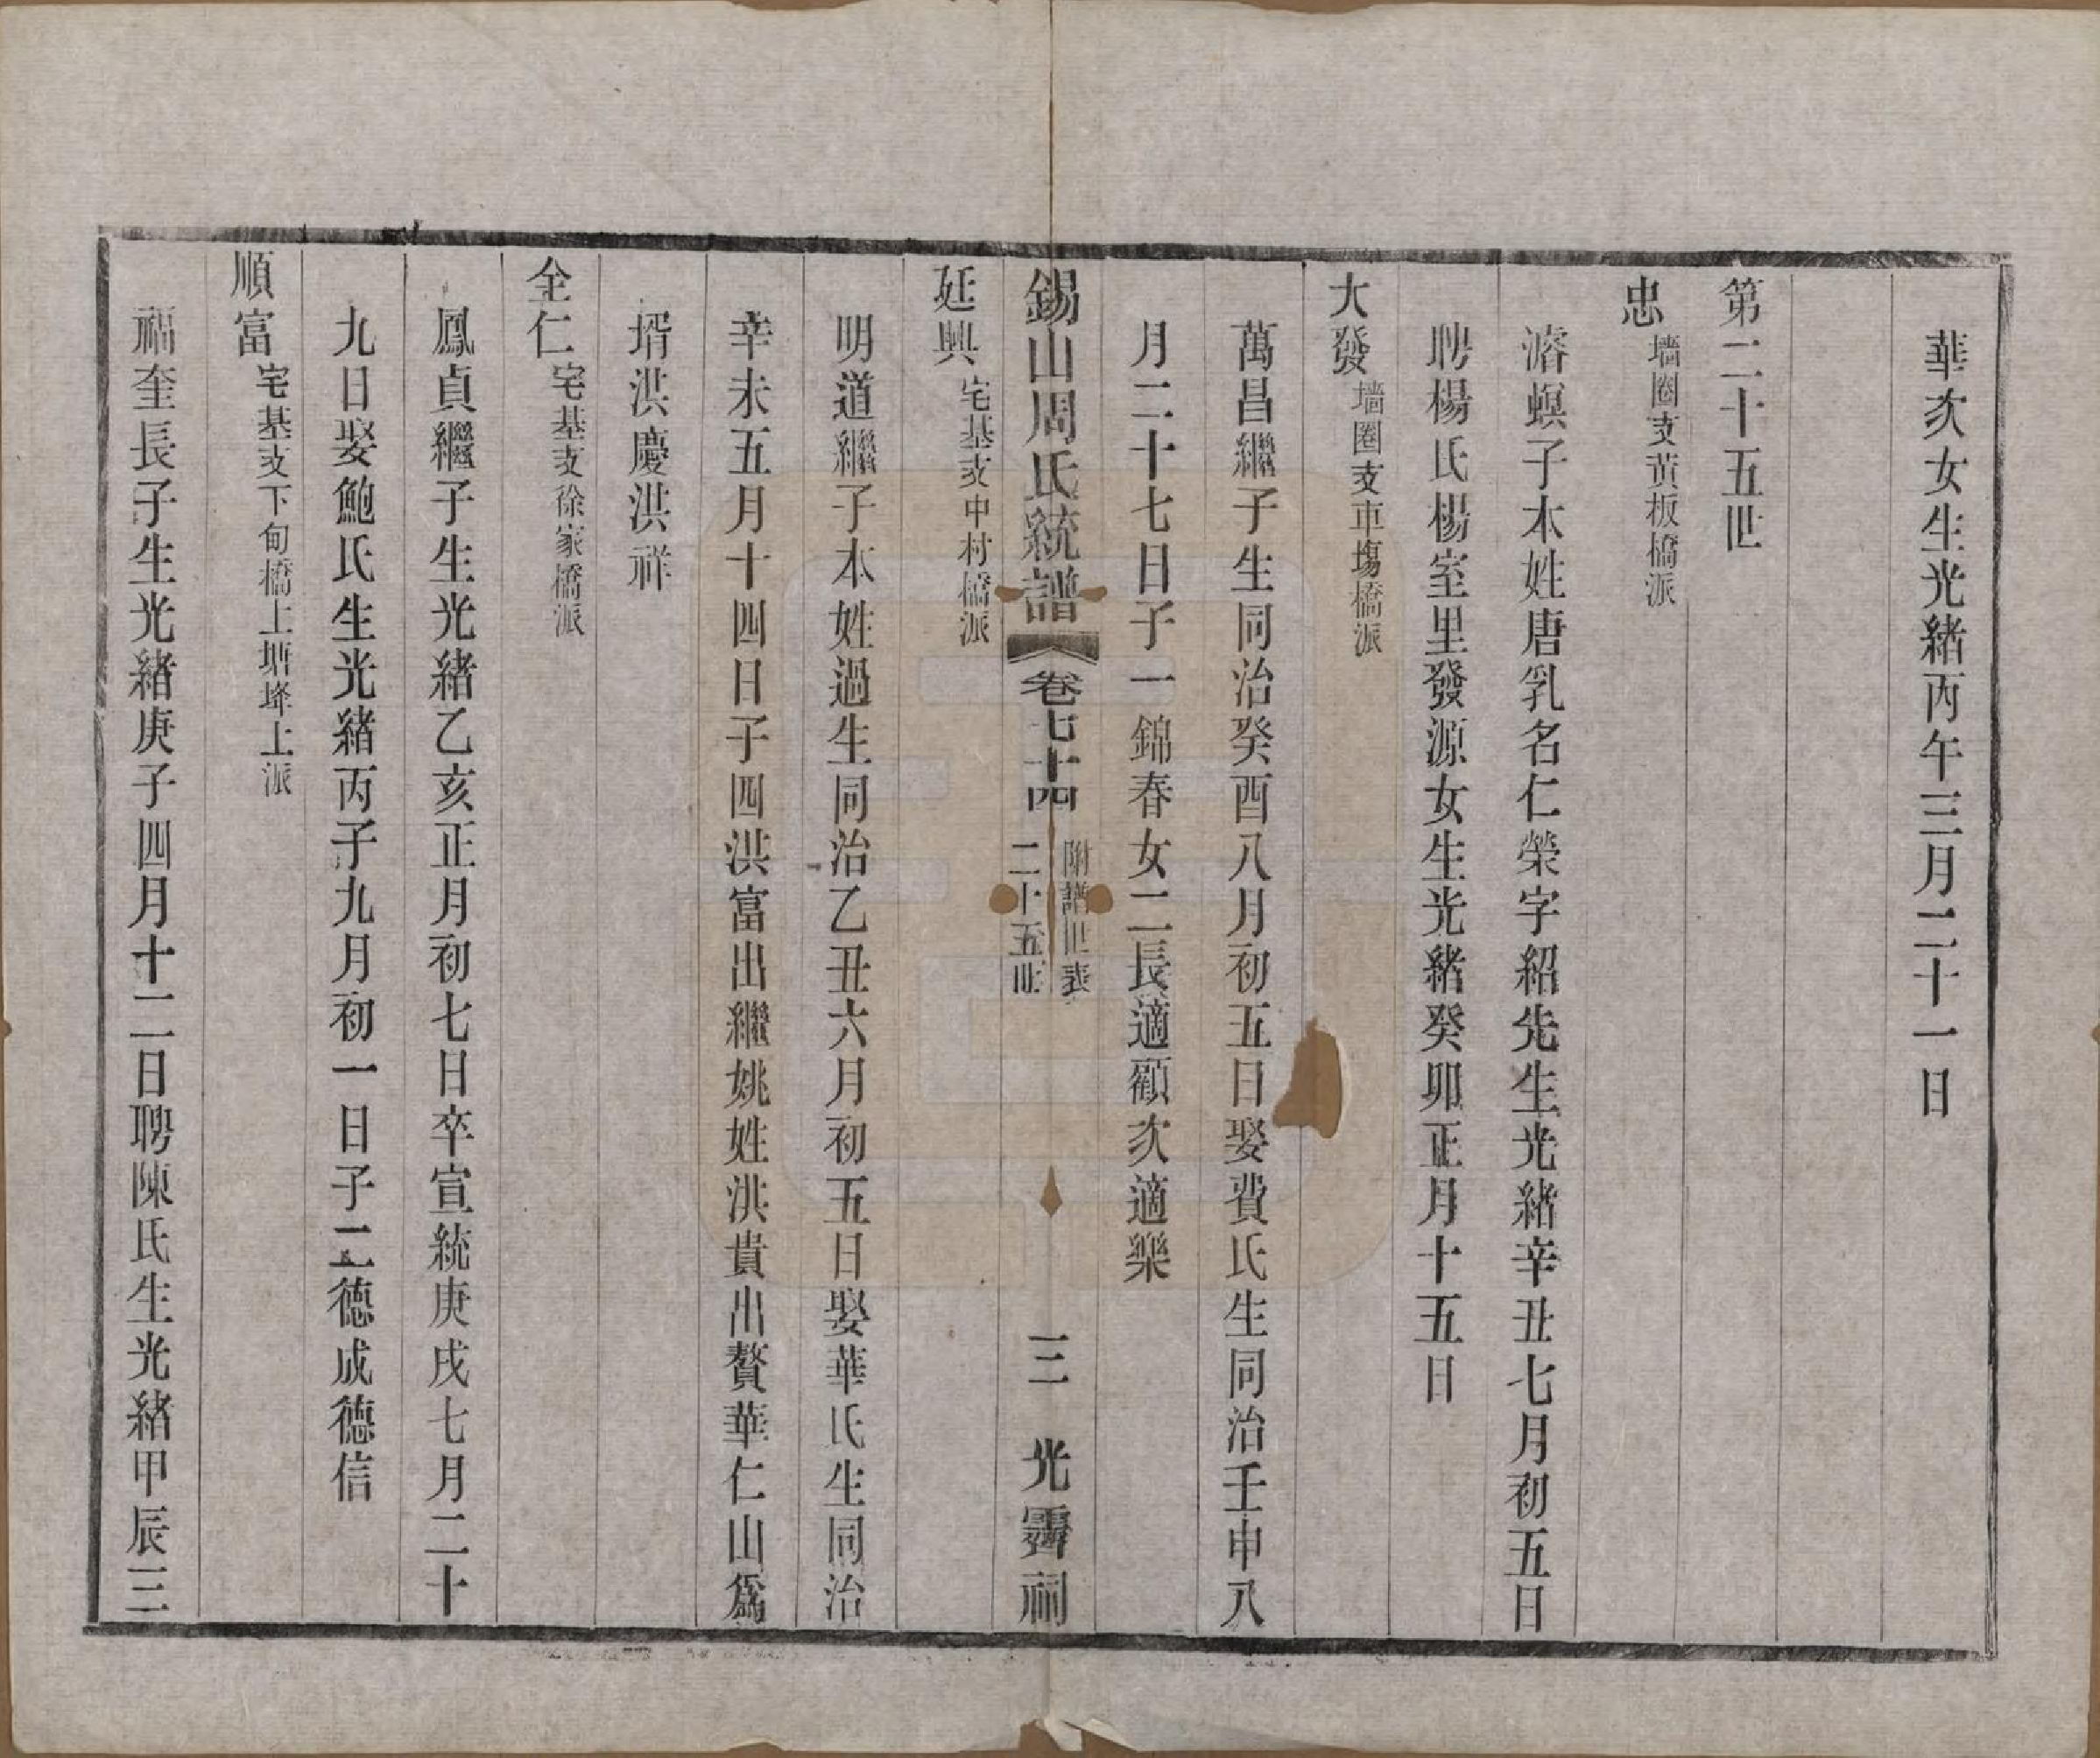 華次女生光緒丙午三月二十一日
第二十五世
忠 墻圈支黄板橋派
濬螟子本姓唐乳名仁榮字紹先生光緒辛丑七月初五日
聘楊氏楊室里發源女生光緒癸卯正月十五日
大發 墻圈支車塲橋派
萬昌繼子生同治癸酉八月初五日娶費氏生同治壬申八
月二十七日子一錦春女二長適顧次適樂
錫山周氏統譜 卷七十四 附譜世表 二十五世 三 光霽祠
延興 宅基支中村橋派
明道繼子本姓過生同治乙丑六月初五日娶華氏生同治
辛未五月十四日子四洪富出繼姚姓洪貴出贅華仁山爲
壻洪慶洪祥
全仁 宅基支徐家橋派
鳳貞繼子生光緒乙亥正月初七日卒宣統庚戌七月二十
九日娶鮑氏生光緒丙子九月初一日子二德成德信
順富 宅基支下旬橋上塘墿上派
福奎長子生光緒庚子四月十二日聘陳氏生光緒甲辰三